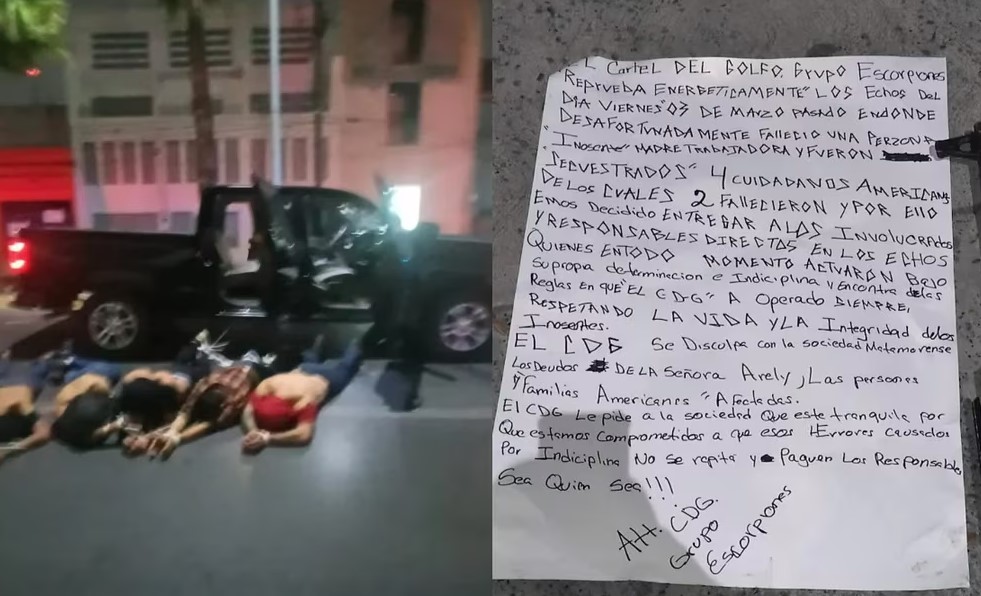 L Cartel DEL GOLFO. Grupo Escorpiones
REPRUEBA ENERGETICAMENTE" LOS Echos DEL
DIA VIERNES" 03 DE MARZO PASADO ENDONDE
DESAFORTUNADAMENTE FALLECIO UNA PERZONA
"INOSENTE" MADRE TRABAJADORA Y FUERON
SECUESTRADOS" 4 CUIDADANOS AMERICANS
DE LOS CUALES 2 FALLECIERON Y POR Ello
EMOS DECIDIDO ENTREGAR A LOS INVOLUCRADOS
Y RESPONSABLES DIRECTOS EN LOS ECHOS
QUIENES EN TODO MOMENTO ACTUARON BAJO
Su propia determinacion e Indiciplina y encontra delas
Reglas en que "EL CDG" A Operado SIEMPRE,
RESPETANDO LA VIDA Y LA Integridad delos
Inosentes.
EL CDG Se Disculpa con la sociedad Matamorense
Los Deudos DE LA Señora Arely, Las personas
Y Familias Americanas "Afectadas.
El CDG Le pide a la sociedad Que este tranquila por
Que estamos comprometidos a que esos Errores causados
Por Indiciplina No se repita y Paguen Los Responsables
Sea Quien Sea!!!
Att. CDG.
Grupo
Escorpiones